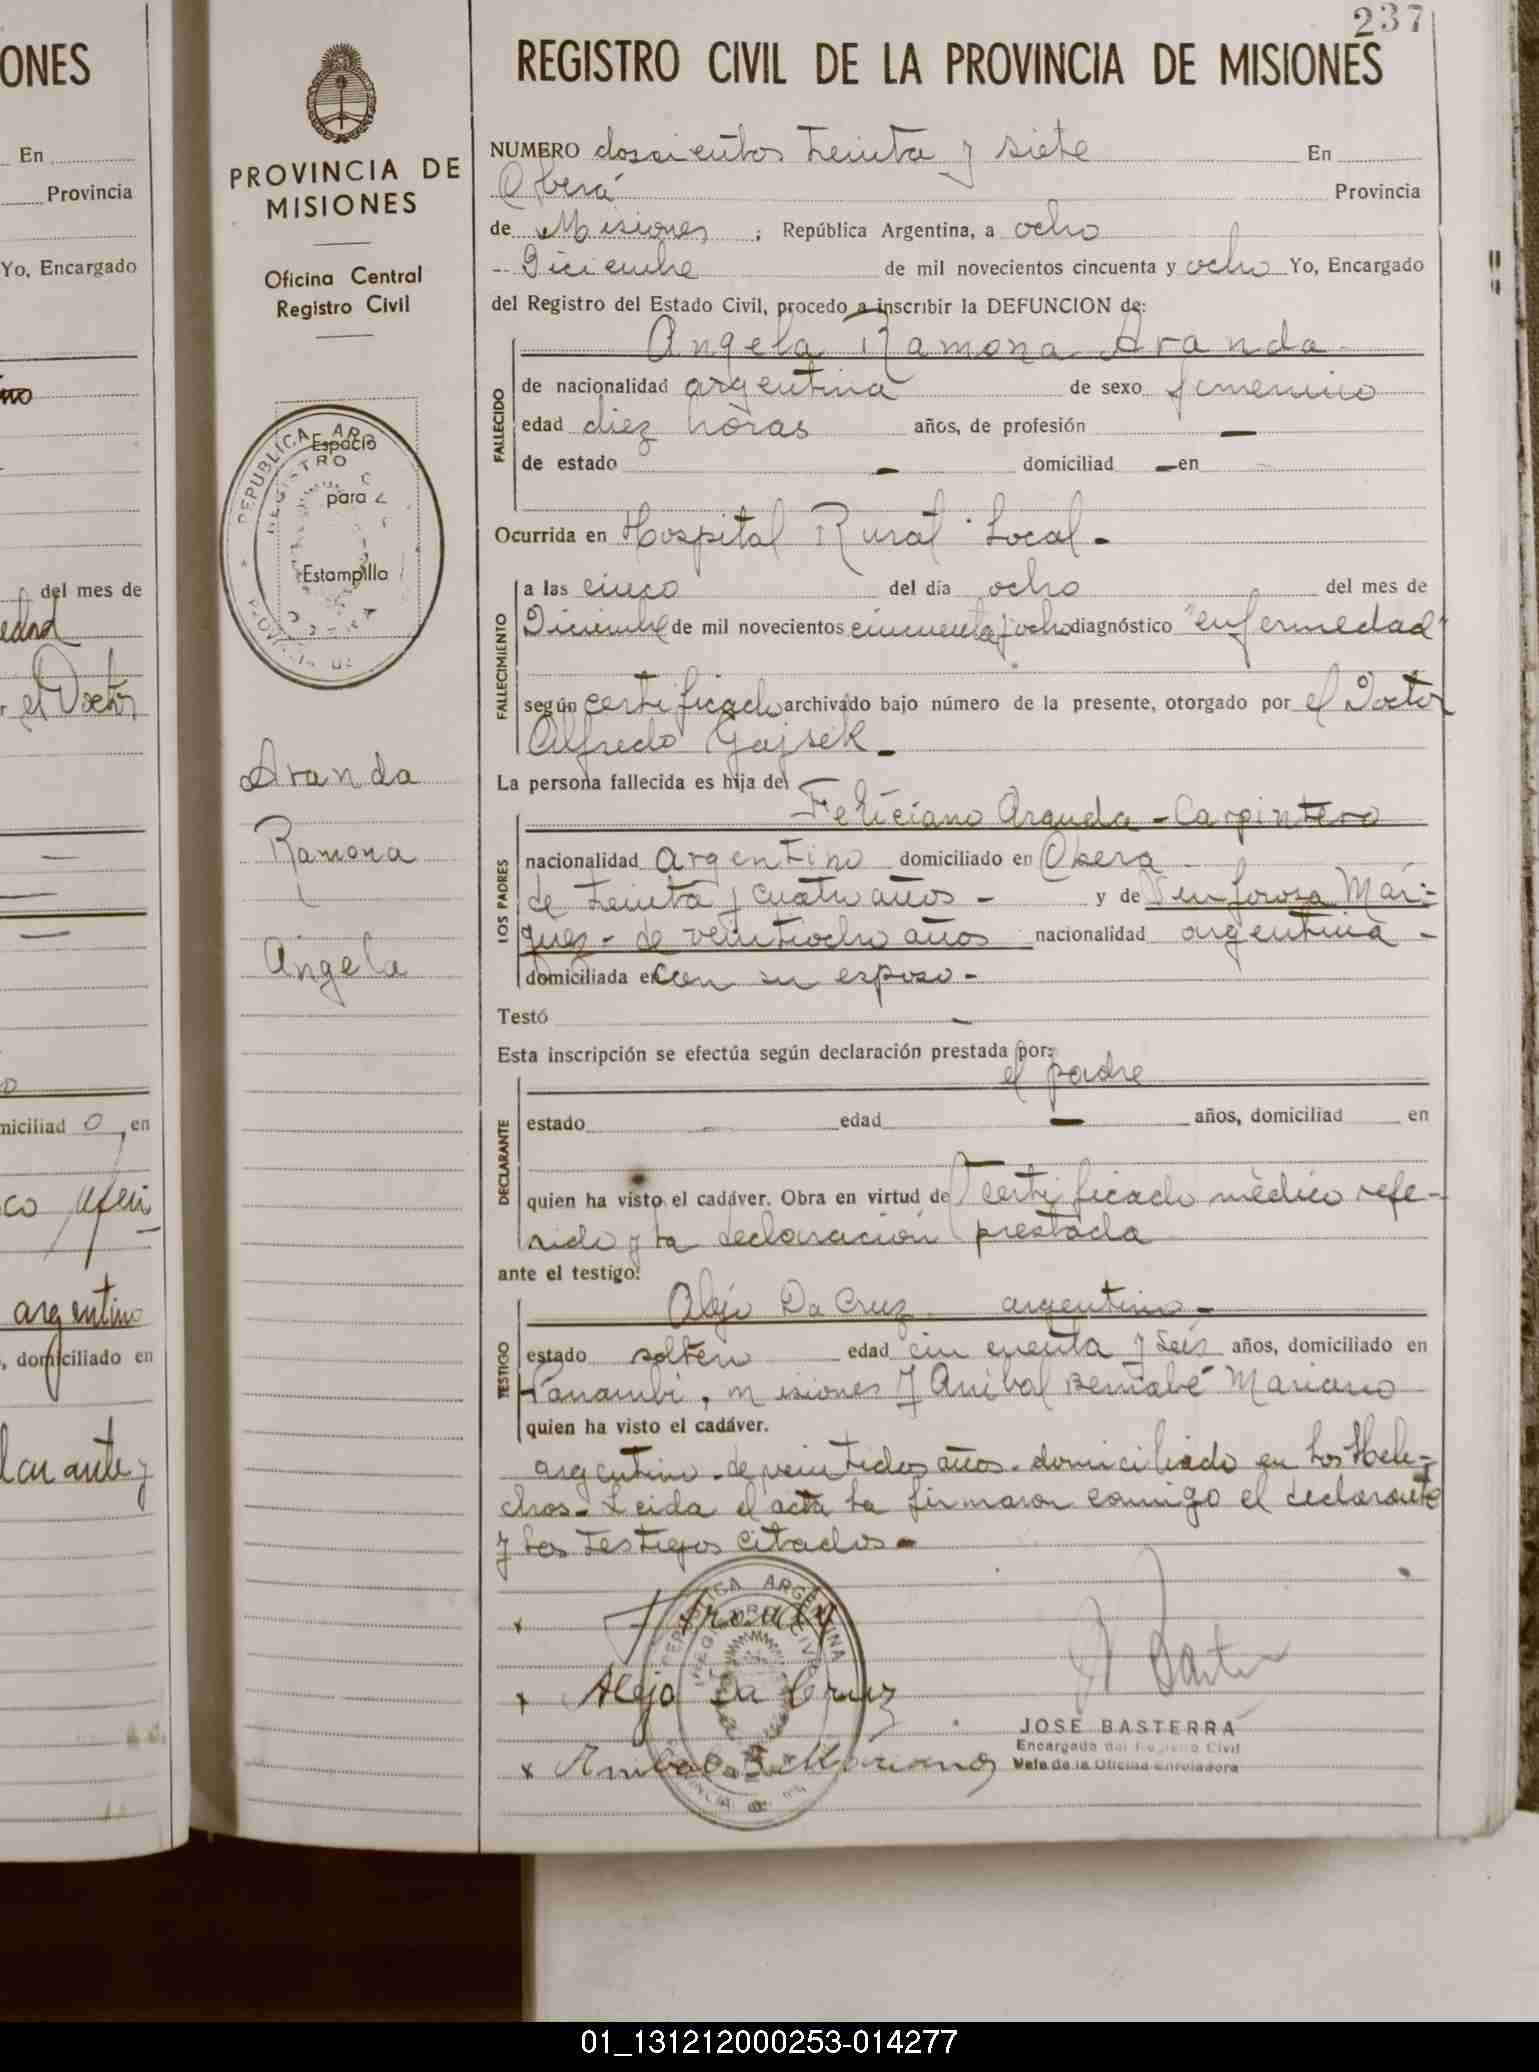 ONES
En
Provincia
Yo, Encargado
del mes de
edad
r el Doctor
miciliad o en
argentino
, domiciliado en
PROVINCIA DE
MISIONES
Oficina Central
Registro Civil
REPUBLICA AR
REGISTRO
Espacio
para
Estampilla
Aranda
Ramona
Angela
237
REGISTRO CIVIL DE LA PROVINCIA DE MISIONES
NUMERO doscientos treinta y siete En
Oberá Provincia
de Misiones ; República Argentina, a ocho
Diciembre de mil novecientos cincuenta y ocho Yo, Encargado
del Registro del Estado Civil, procedo a inscribir la DEFUNCION de:
Angela Ramona Aranda
FALLECIDO
de nacionalidad argentina de sexo femenino
edad diez horas años, de profesión —
de estado — domiciliad — en
Ocurrida en Hospital Rural Local -
FALLECIMIENTO
a las cinco del día ocho del mes de
Diciembre de mil novecientos cincuenta y ocho diagnóstico "enfermedad"
según certificado archivado bajo número de la presente, otorgado por el Doctor
Alfredo Gajsek -
La persona fallecida es hija de
LOS PADRES
Feliciano Aranda - Carpintero
nacionalidad argentino domiciliado en Obera
de treinta y cuatro años - y de Venforosa Már-
quez - de veintiocho años nacionalidad argentina -
domiciliada en con su esposo -
Testó —
Esta inscripción se efectúa según declaración prestada por:
DECLARANTE
el padre
estado — edad — años, domiciliad en
quien ha visto el cadáver. Obra en virtud de certificado mèdico refe-
rido y la declaración prestada
ante el testigo:
TESTIGO
Alejo Da Cruz argentino -
estado soltero edad cincuenta y seis años, domiciliado en
Panambi, misiones y Anibal Bernabé Mariano
quien ha visto el cadáver.
argentino - de veintidos años - domiciliado en Los Hele-
chos - Leida el acta la firmaron conmigo el declarante
y los testigos citados -
x
x Alejo Da Cruz
x Anibal B. Mariano
JOSE BASTERRA
Encargado del Registro Civil
Jefe de la Oficina Enroladora
01_131212000253-014277